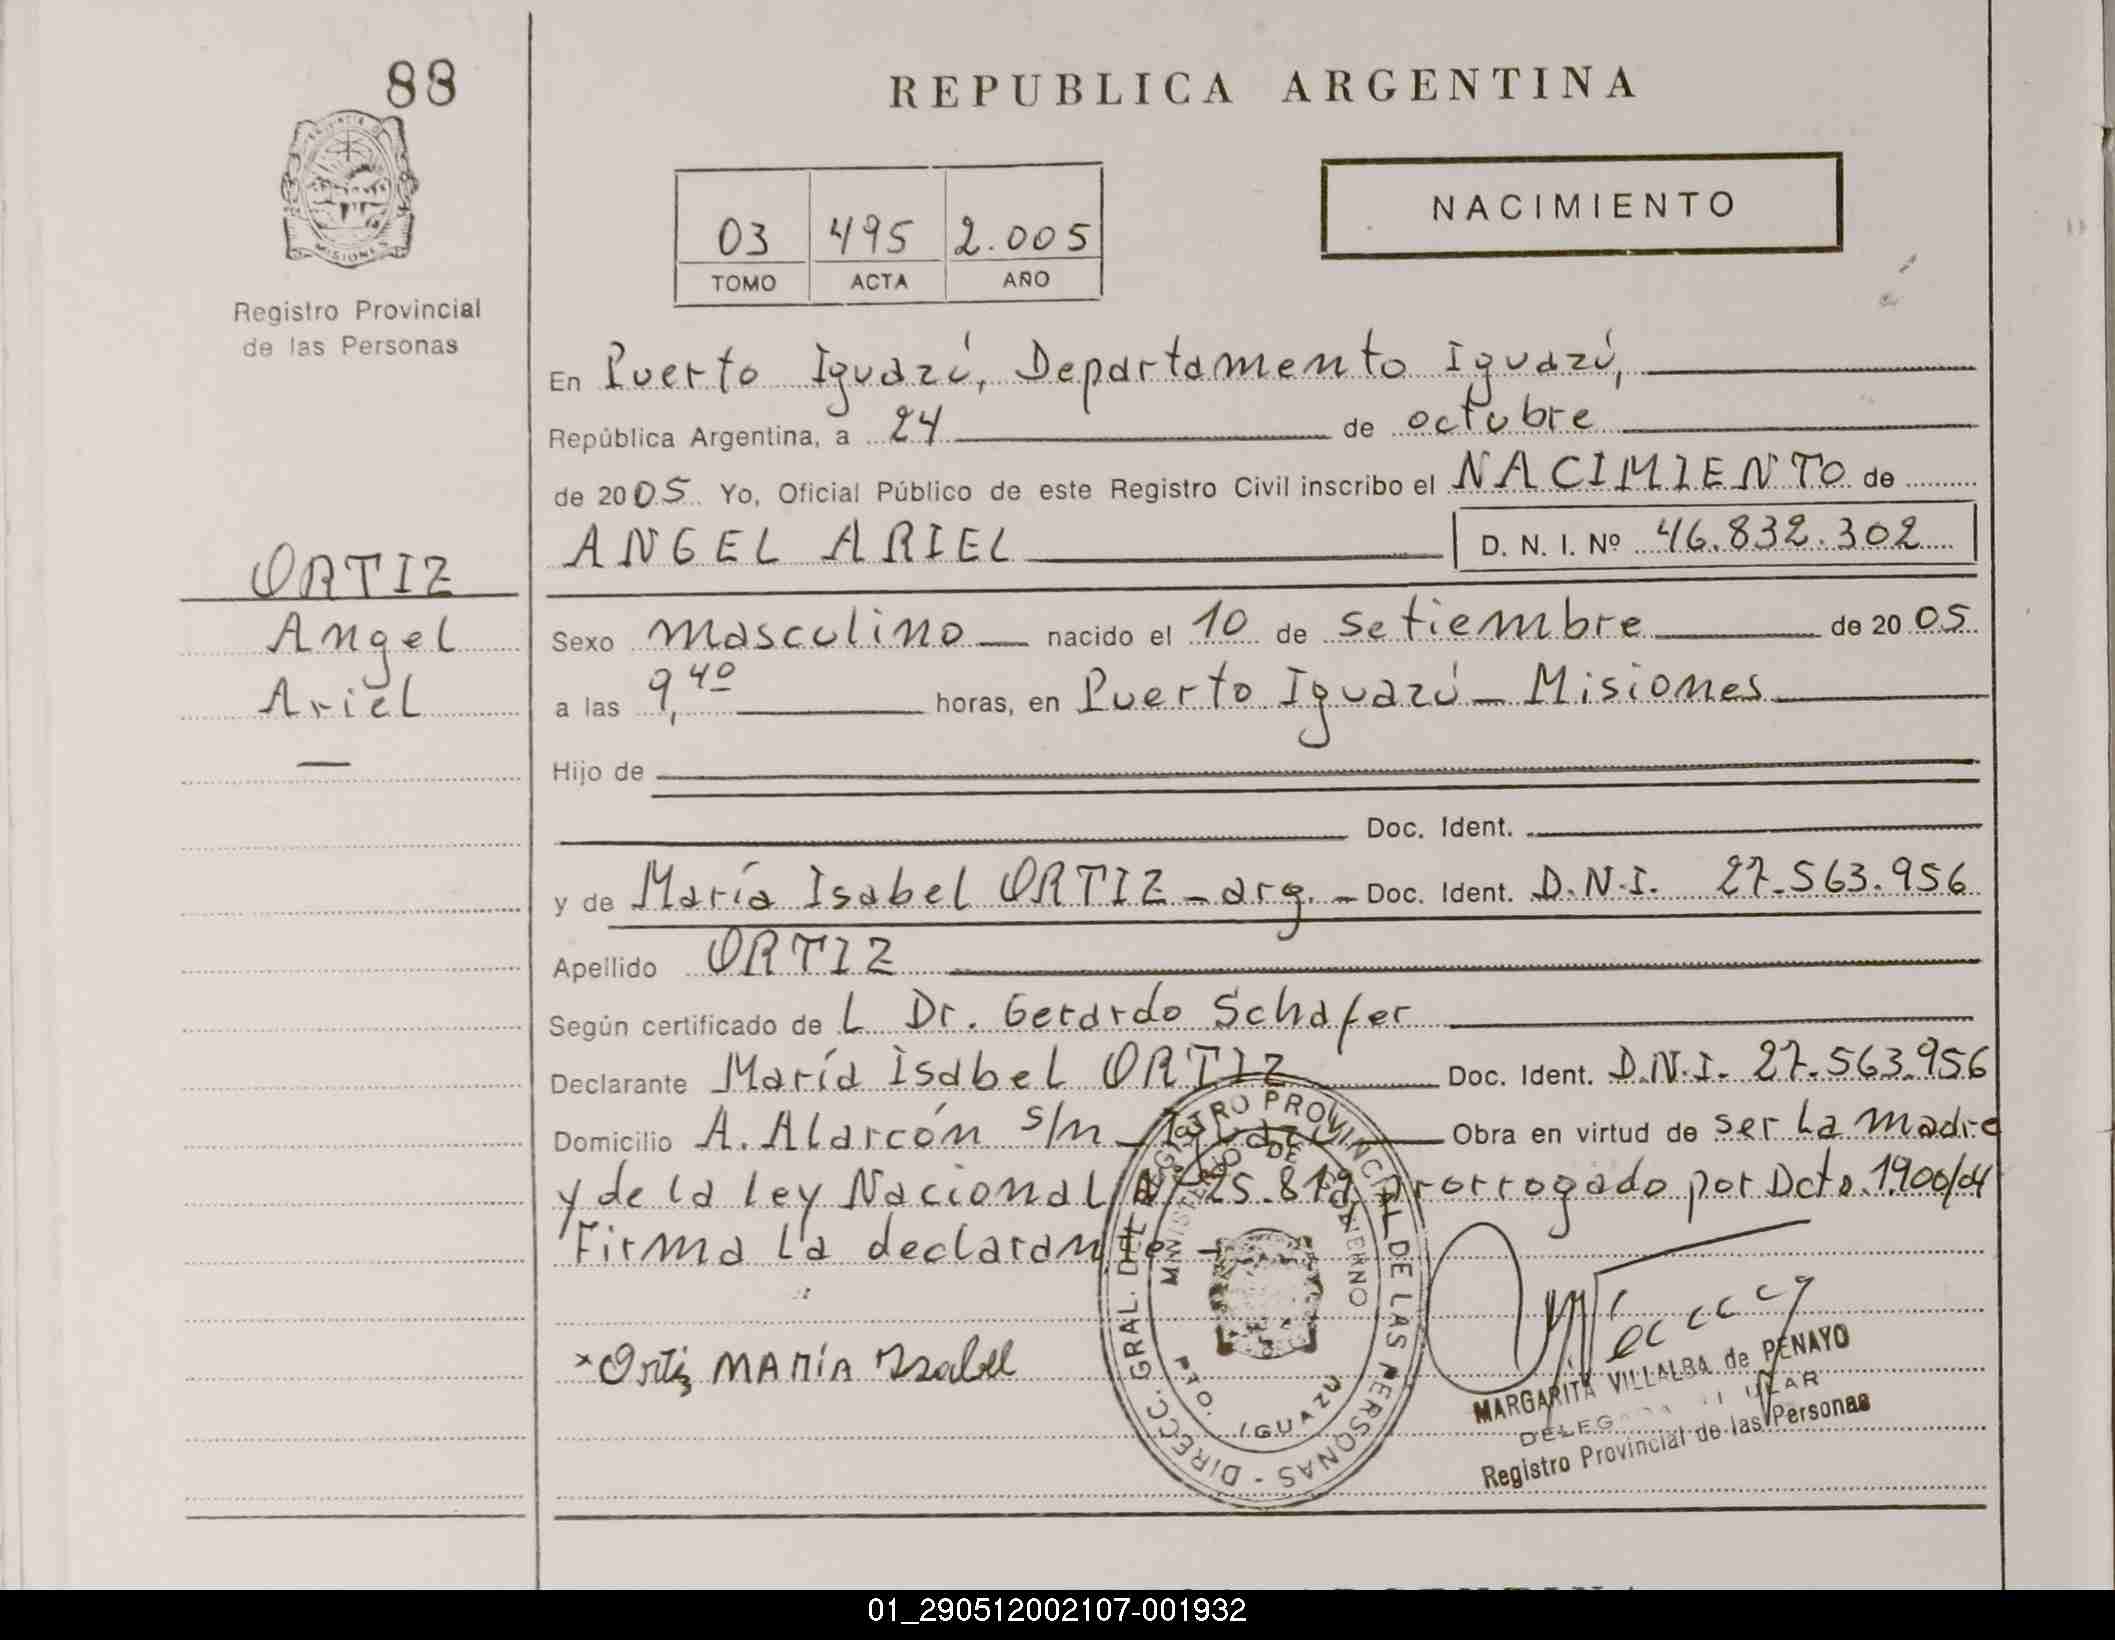 88
REPUBLICA ARGENTINA
NACIMIENTO
03 495 2.005
TOMO ACTA AÑO
Registro Provincial
de las Personas
En Puerto Iguazú, Departamento Iguazú,
República Argentina, a 24 de octubre
de 2005 Yo, Oficial Público de este Registro Civil inscribo el NACIMIENTO de
ANGEL ARIEL D. N. I. Nº 46.832.302
ORTIZ
Angel
Ariel
Sexo masculino nacido el 10 de setiembre de 2005
a las 9,40 horas, en Puerto Iguazú - Misiones
Hijo de
Doc. Ident.
y de María Isabel ORTIZ - arg. - Doc. Ident. D.N.I. 27.563.956
Apellido ORTIZ
Según certificado de L Dr. Gerardo Schafer
Declarante María Isabel ORTIZ Doc. Ident. D.N.I. 27.563.956
Domicilio A. Alarcón s/n - Iguazú Obra en virtud de ser la madre
y de la ley Nacional Nº 25.819 prorrogado por Dcto. 1900/04
Firma la declarante -
* Ortiz MARÍA Isabel
DIRECC. GRAL. DEL REGISTRO PROVINCIAL DE LAS PERSONAS -
MINISTERIO DE GOBIERNO
PTO. IGUAZU
MARGARITA VILLALBA de PENAYO
DELEGADA TITULAR
Registro Provincial de las Personas
01_290512002107-001932